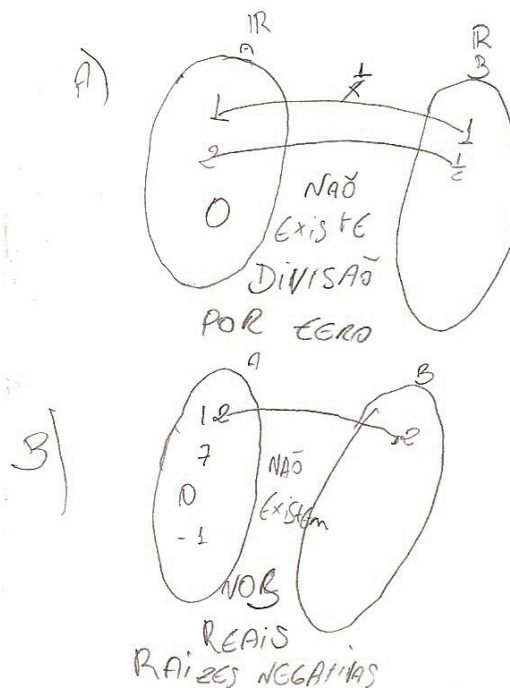 A)
IR
A
IR
B
1
1/x
1
2
1/2
0
NAÕ
EXISTE
DIVISAÕ
POR ZERO
B)
A
B
12
2
7
0
-1
NAÕ
EXISTEM
NOS
REAIS
RAIZES NEGATIVAS